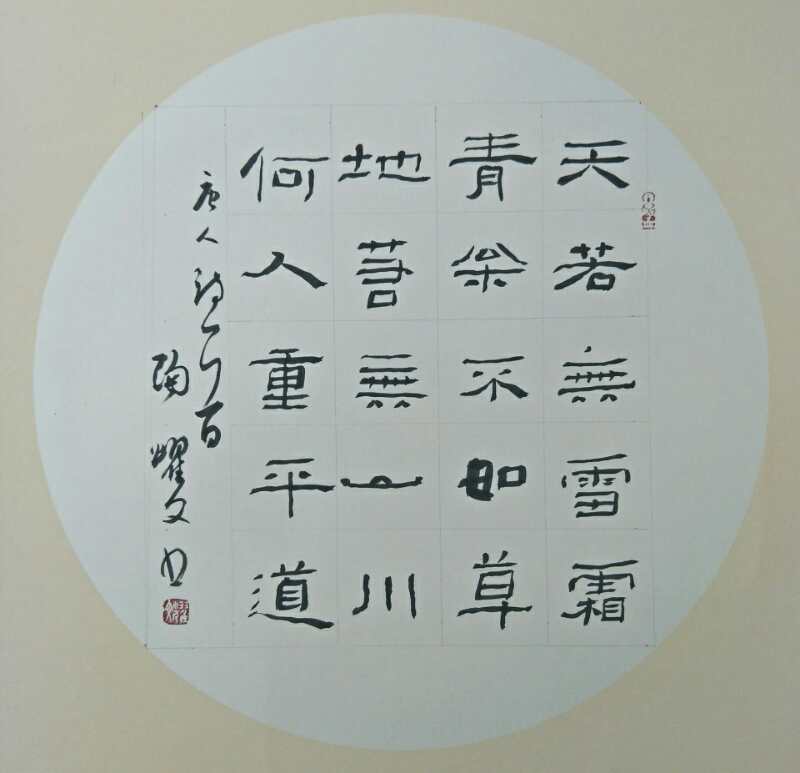 天若無雪霜
青枀不如草
地若無山川
何人重平道
唐人詩一首
陶耀文书